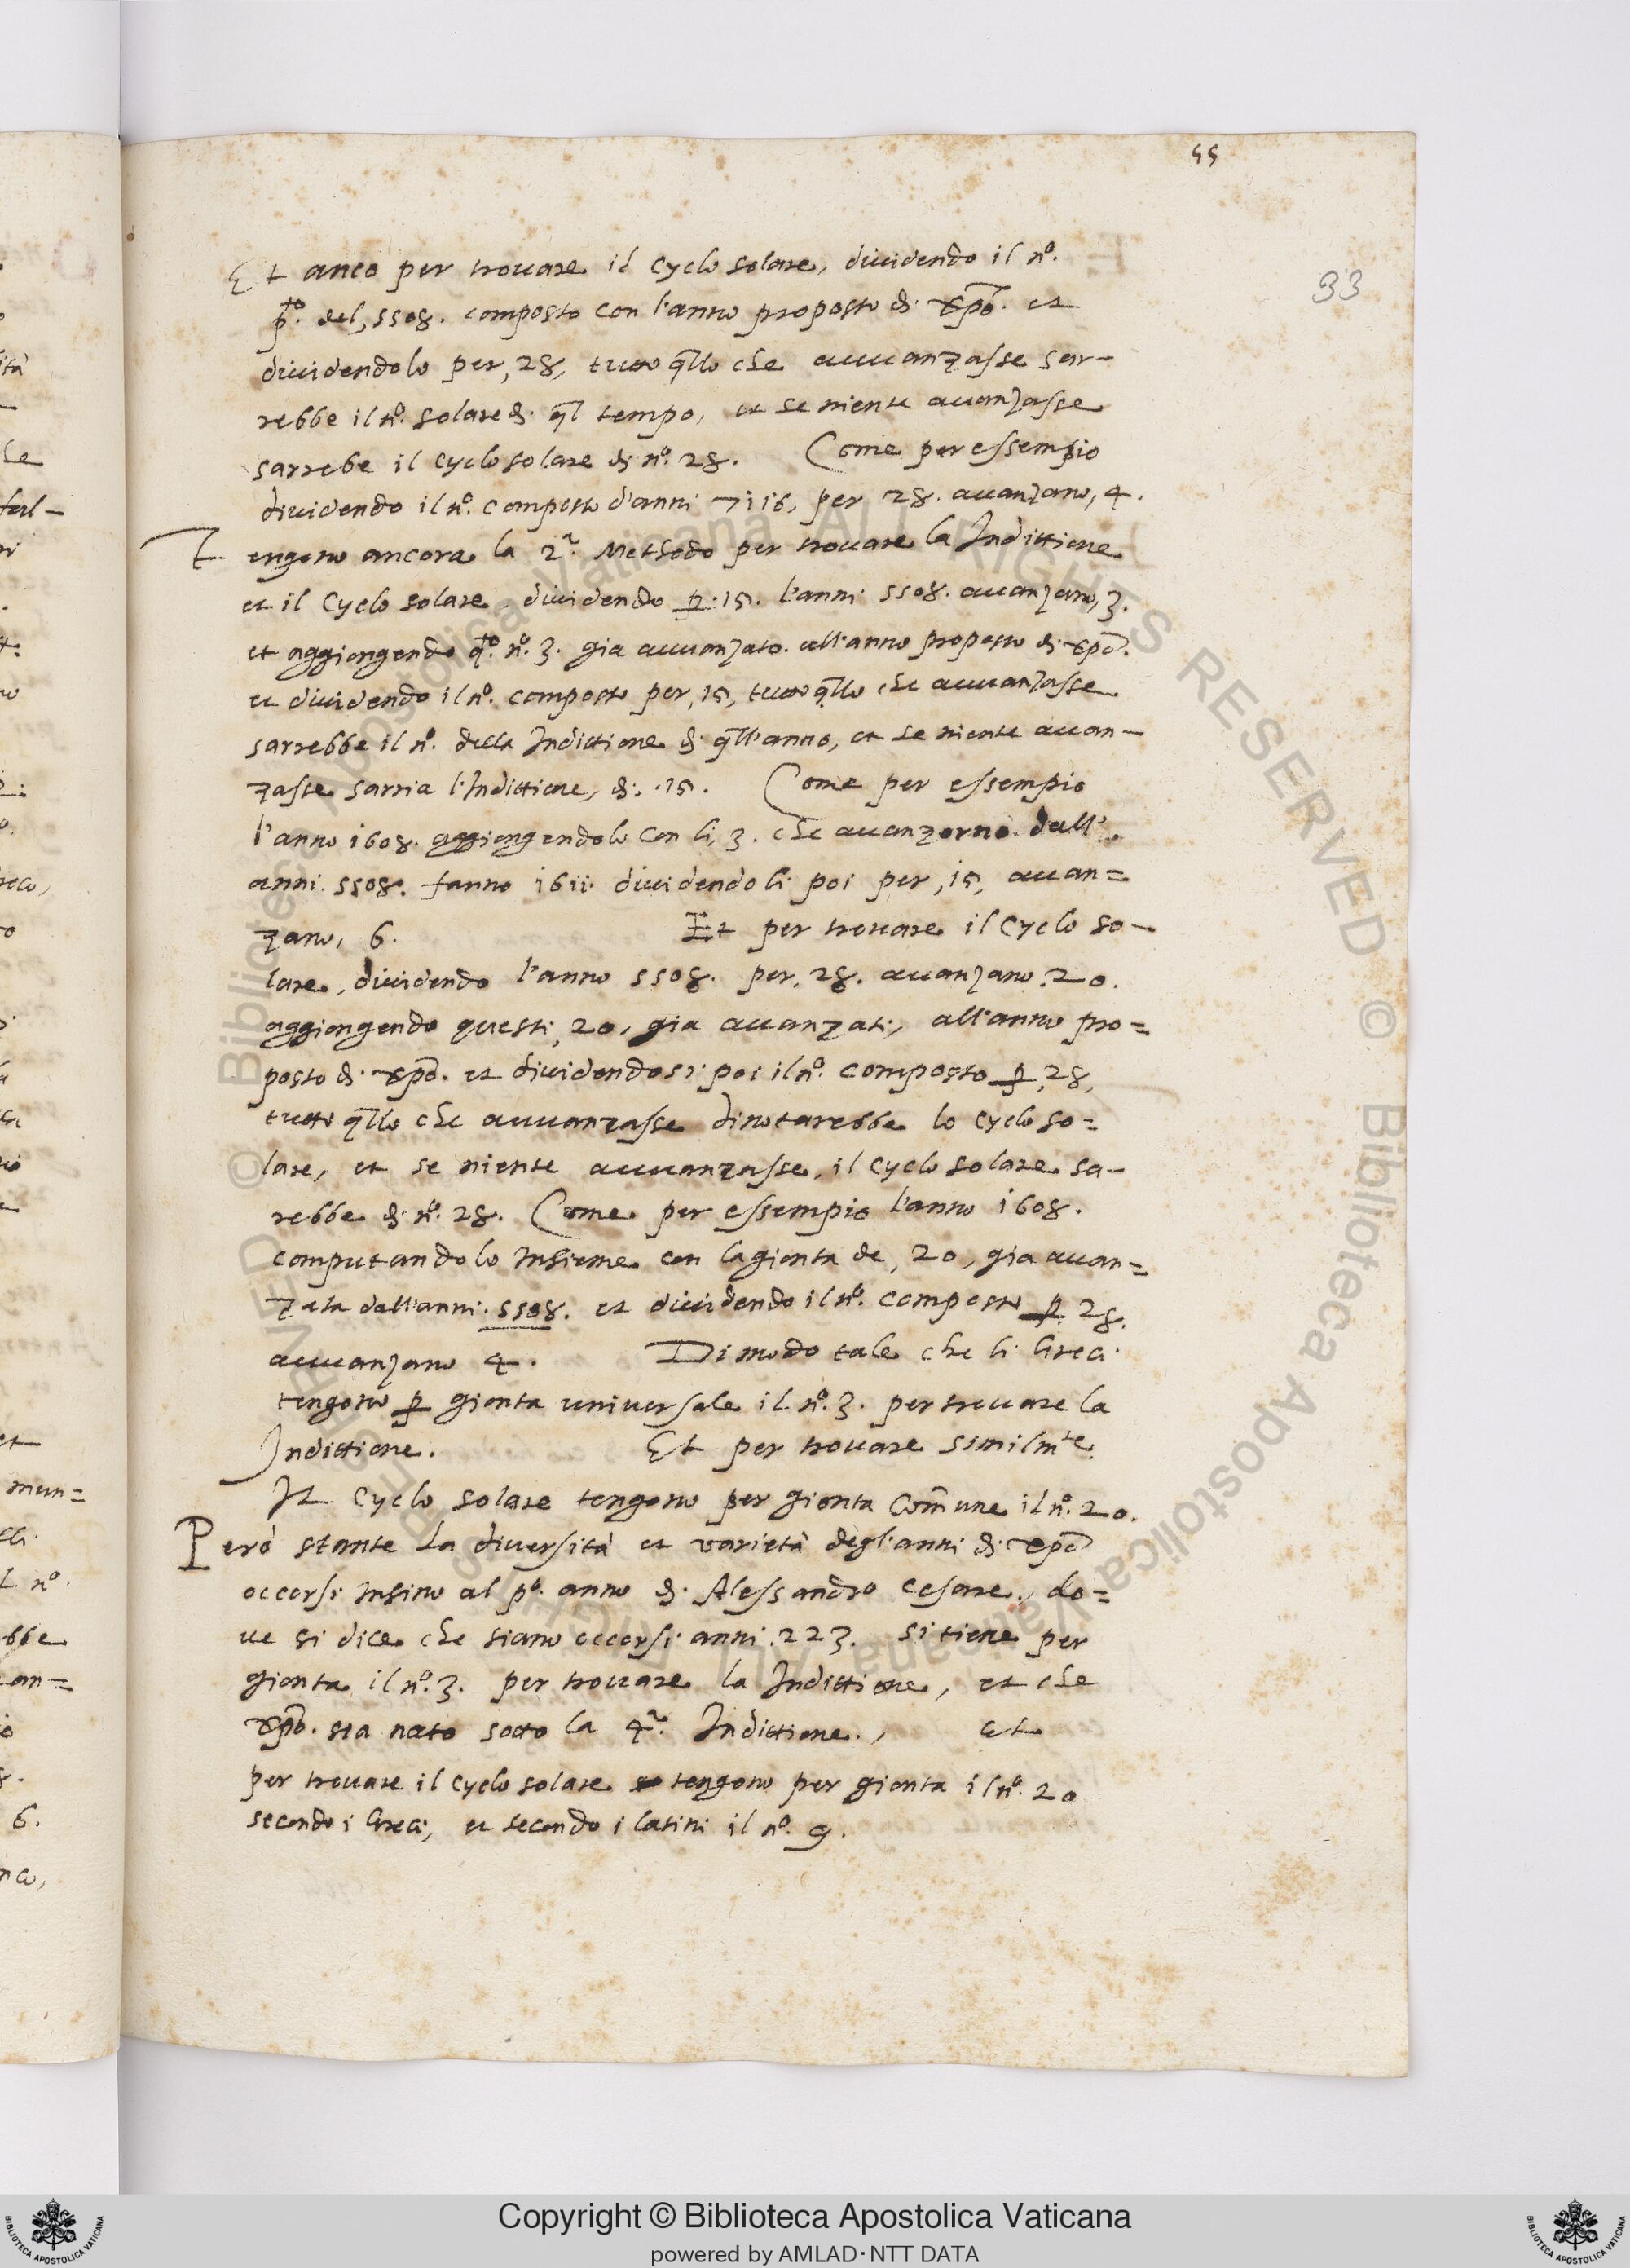 55
33
Et anco per trouare il cyclo solare, diuidendo il n°.
p.to del, 5508. composto con l'anno proposto di xpo. et
diuidendolo per, 28, tutto qllo che auuanzasse sar-
rebbe il n°. solare di ql tempo, et se niente auanzasse
sarrebe il cyclo solare di n°. 28. Come per essempio
diuidendo il n°. composto d'anni 7116, per 28. auanzano, 4.
Tengono ancora la 2a. Methodo per trouare la Indittione
et il Cyclo solare, diuidendo p. 15. l'anni 5508. auanzano, 3.
et aggiongendo q.to n°. 3. gia auuanzato. all'anno proposto di xpo.
et diuidendo il n°. composto per, 15, tutto qllo che auuanzasse
sarrebbe il n°. della Indittione di qll'anno, et se niente auan-
zasse sarria l'Indittione, di. 15. Come per essempio
l'anno 1608. aggiongendolo con li, 3. che auanzorno. dall'
anni. 5508. fanno 1611 diuidendoli poi per, 15, auan=
zano, 6. Et per trouare il Cyclo so-
lare, diuidendo l'anno 5508. per, 28. auanzano. 20.
aggiongendo questi, 20, gia auanzati, all'anno pro=
posto di xpo. et diuidendosi poi il n°. composto p, 28,
tutto qllo che auuanzasse dinotarebbe lo cyclo so=
lare, et se niente auuanzasse, il cyclo solare sa-
rebbe di n°. 28. Come per essempio l'anno 1608.
computandolo Insieme con la gionta de, 20, gia auan=
zata dall'anni. 5508. et diuidendo il n°. composto p. 28.
auuanzano 4. Di modo tale che li Greci
tengono p gionta uniuersale il n°. 3. per trouare la
Indittione. Et per trouare similmte
Il Cyclo solare tengono per gionta Comune il n°. 20.
Però stante la diuersità et varietà degl'anni di xpo
occorsi Insino al p°. anno di Alessandro Cesare, do=
ue si dice che siano occorsi anni. 223. si tiene per
gionta il n°. 3. per trouare la Indittione, et che
xpo. sia nato sotto la 4a. Indittione., et
per trouare il cyclo solare tengono per gionta il n°. 20
secondo i Greci, et secondo i latini il n°. 9.
© Biblioteca Apostolica Vaticana ALL RIGHTS RESERVED
Copyright © Biblioteca Apostolica Vaticana
powered by AMLAD·NTT DATA
BIBLIOTECA APOSTOLICA VATICANA
BIBLIOTECA APOSTOLICA VATICANA